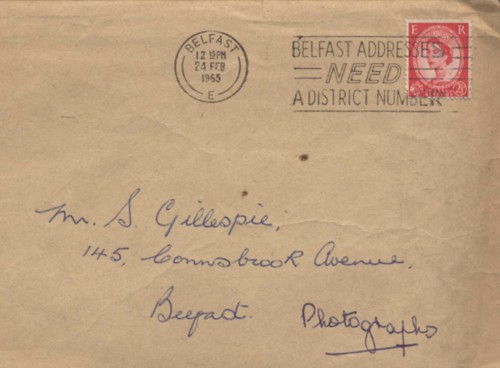 BELFAST
24 FEB
1965
E
BELFAST ADDRESSES
NEED
A DISTRICT NUMBER
E R
Mr. S. Gillespie,
145, Connsbrook Avenue,
Belfast.
Photographs